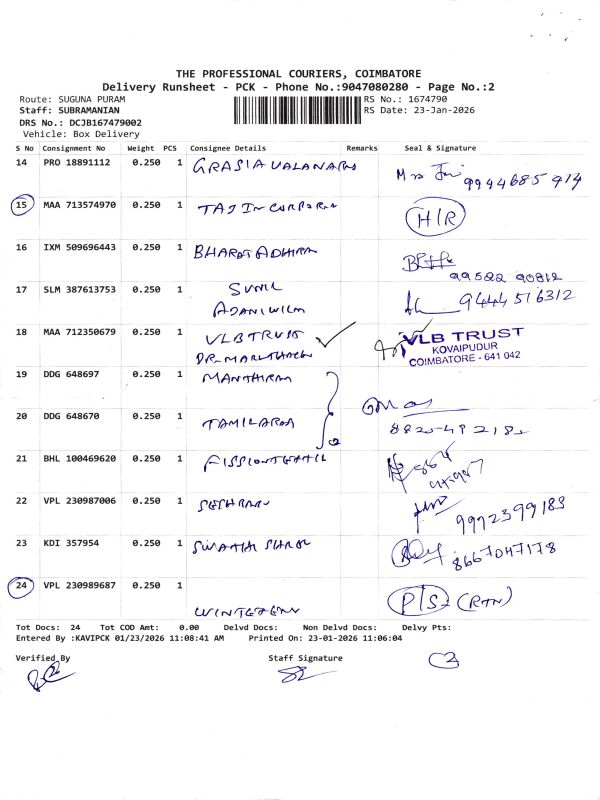 THE PROFESSIONAL COURIERS, COIMBATORE
Delivery Runsheet - PCK - Phone No.:9047080280 - Page No.:2
Route: SUGUNA PURAM RS No.: 1674790
Staff: SUBRAMANIAN RS Date: 23-Jan-2026
DRS No.: DCJB167479002
Vehicle: Box Delivery
S No Consignment No Weight PCS Consignee Details Remarks Seal & Signature
14 PRO 18891112 0.250 1 GRASIA VALANARS
9944685 914
15 MAA 713574970 0.250 1 TAJ INCORPORN H/R
16 IXM 509696443 0.250 1 BHARAT ADHIRA
99522 90812
17 SLM 387613753 0.250 1 SUNIL 9444516312
ADANI WILM
18 MAA 712350679 0.250 1 VLB TRUST VLB TRUST
KOVAIPUDUR
COIMBATORE - 641 042
19 DDG 648697 0.250 1 MANTHIRAM
20 DDG 648670 0.250 1 TAMILARASA
21 BHL 100469620 0.250 1
22 VPL 230987006 0.250 1 9992399183
23 KDI 357954 0.250 1 8667047178
24 VPL 230989687 0.250 1 P/S (RTN)
Tot Docs: 24 Tot COD Amt: 0.00 Delvd Docs: Non Delvd Docs: Delvy Pts:
Entered By :KAVIPCK 01/23/2026 11:08:41 AM Printed On: 23-01-2026 11:06:04
Verified By Staff Signature